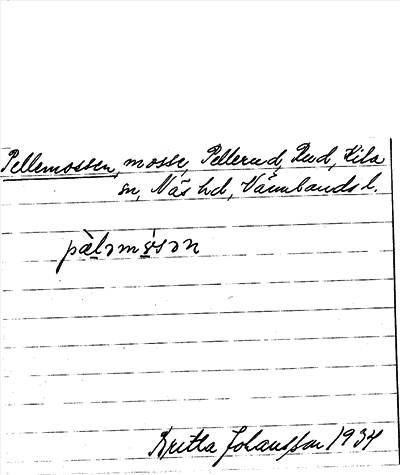 Pellemossen, mosse, Pellerud, Rud, Kila
sn, Näs hd, Värmlands l.
pàləmɷ̀sən
Britta Johansson 1934